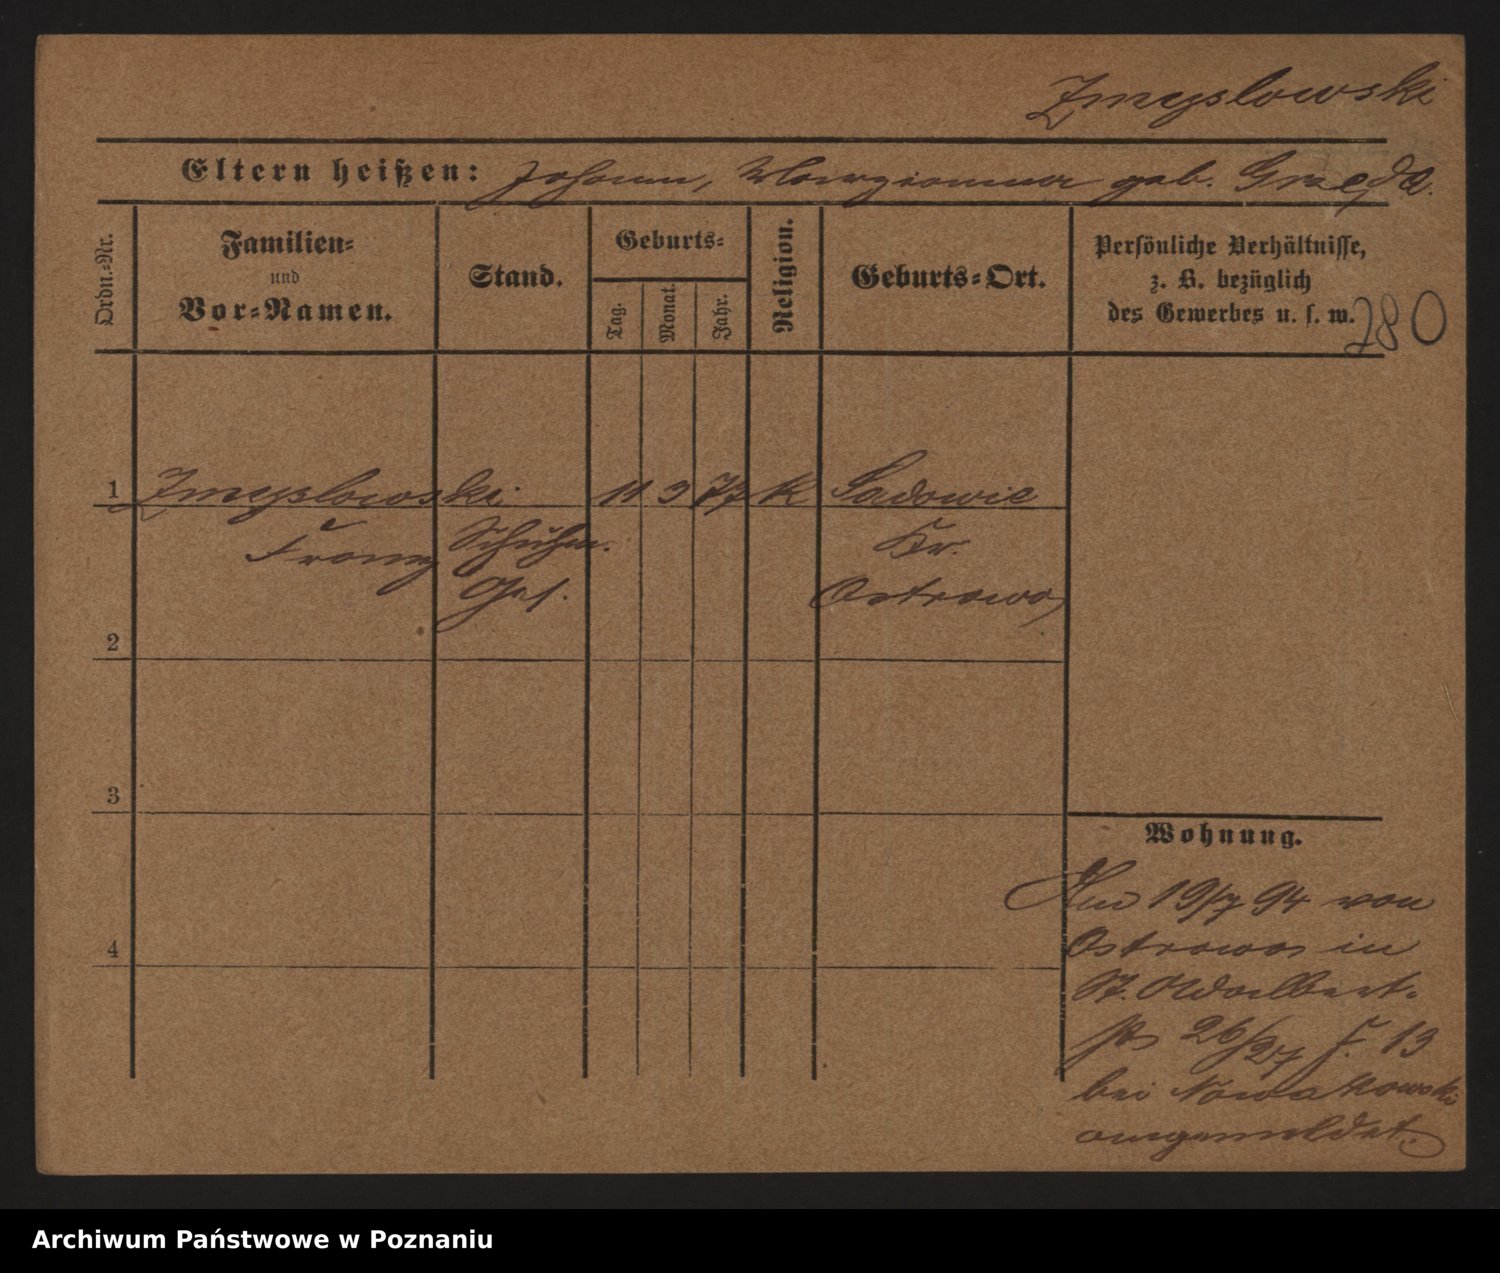 Zmyslowski
Eltern heißen: Johann, Maryianna geb. Gra
Ordn.=Nr.
Familien=
und
Vor=Namen.
Stand.
Geburts=
Tag.
Monat.
Jahr.
Religion.
Geburts=Ort.
Persönliche Verhältnisse,
z. B. bezüglich
des Gewerbes u. s. w.
280
1 Zmyslowski 11 3 77 k Sadowie
Franz Schuhm. Kr.
Ges. Ostrowo
2
3
4
Wohnung.
Am 19/7 94 von
Ostrowo in
St. Adalbert-
26/27 I. 13
bei Nowakowski
angemeldet.
Archiwum Państwowe w Poznaniu